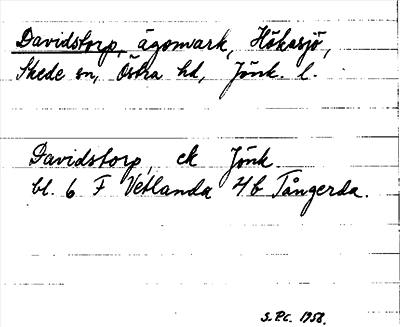 Davidstorp, ägomark, Hökasjö,
Skede sn, Östra hd, Jönk. l.
Davidstorp, ek Jönk
bl. 6 F Vetlanda 4b Tångerda.
S.P.C. 1958.